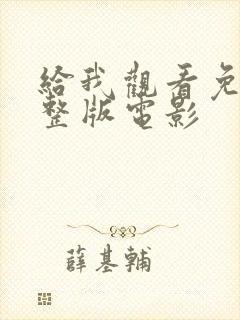 給我觀看免
整版電影
薛基輔